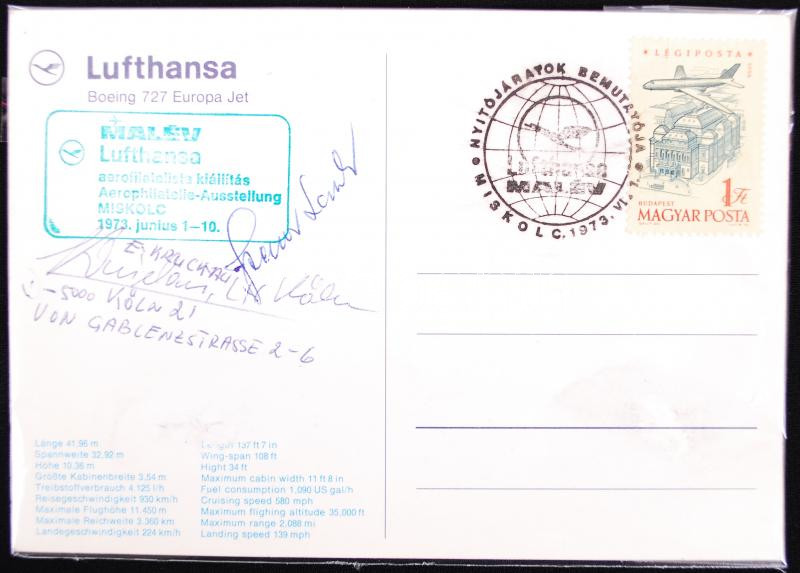 Lufthansa
Boeing 727 Europa Jet
MALÉV
Lufthansa
aerofilatelista kiállítás
Aerophilatelie-Ausstellung
MISKOLC
1973. junius 1-10.
E. KRUCKAU
LH Köln
-5000 KÖLN 21
VON GABLENZSTRASSE 2-6
Länge 41,96 m
Spannweite 32,92 m
Höhe 10,36 m
Größte Kabinenbreite 3,54 m
Treibstoffverbrauch 4.125 l/h
Reisegeschwindigkeit 930 km/h
Maximale Flughöhe 11.450 m
Maximale Reichweite 3.360 km
Landegeschwindigkeit 224 km/h
Length 137 ft 7 in
Wing-span 108 ft
Hight 34 ft
Maximum cabin width 11 ft 8 in
Fuel consumption 1,090 US gal/h
Cruising speed 580 mph
Maximum flighing altitude 35,000 ft
Maximum range 2,088 mi
Landing speed 139 mph
NYITÓJÁRATOK BEMUTATÓJA
Lufthansa
MALÉV
MISKOLC. 1973. VI. 1.
LÉGIPOSTA
BUDAPEST
1 Ft
MAGYAR POSTA